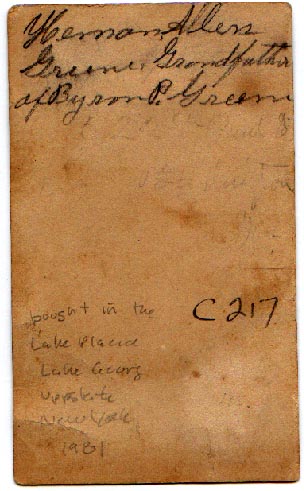 Heman Allen
Greene, Grandfather
of Byron P. Greene
C 217
bought in the
Lake Placid
Lake Georg
upstate
New York
1981